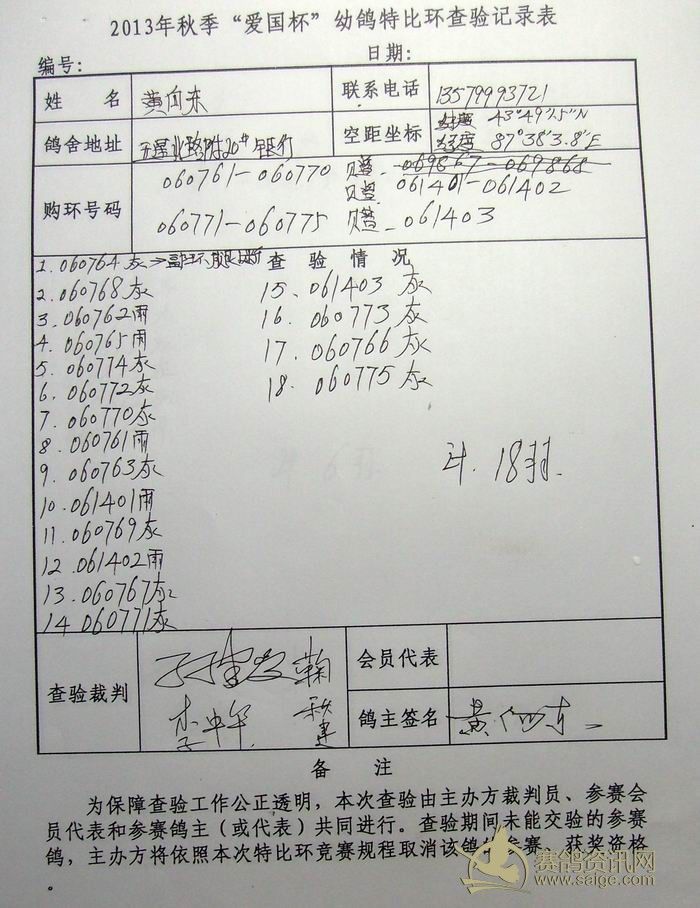 2013年秋季“爱国杯”幼鸽特比环查验记录表
编号: 日期:
姓 名 黄向东 联系电话 13579993721
鸽舍地址 北路附20# 银行 空距坐标 43°49'1.5"N
经度 87°38'3.8"E
购环号码 060761-060770 赠 069867-069868
赠 061401-061402
060771-060775 赠 061403
查 验 情 况
1.060764灰→
2.060768灰
3.060762雨
4.060765雨
5.060774灰
6.060772灰
7.060770灰
8.060761雨
9.060763灰
10.061401雨
11.060769灰
12.061402雨
13.060767灰
14 060771灰
15、061403 灰
16、060773灰
17、060766灰
18、060775灰
计.18羽.
查验裁判
李中华
会员代表
鸽主签名 黄向东
备 注
为保障查验工作公正透明，本次查验由主办方裁判员、参赛会
员代表和参赛鸽主（或代表）共同进行。查验期间未能交验的参赛
鸽，主办方将依照本次特比环竞赛规程取消该鸽的参赛、获奖资格
。
赛鸽资讯网
www.saige.com